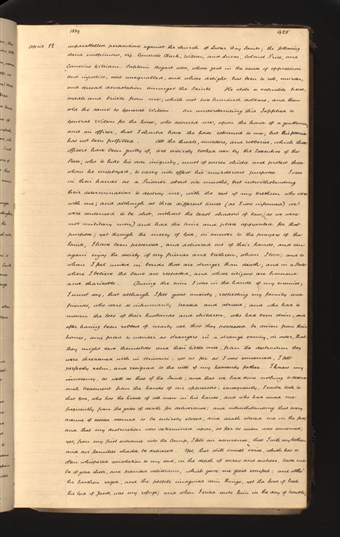 1839
925
April 22 unparalleled persecutions against the church of Latter Day Saints, the following
stand conspicuous, viz. Generals Clark, Wilson, and Lucas, Colonel Price, and
Cornelius Gilliam. Captain Bogart also, whose zeal in the cause of oppression
and injustice, was unequalled, and whose delight has been to rob, murder,
and spread devastation amongst the Saints. He stole a valuable horse,
saddle and bridle from me; which cost two hundred dollars, and then
sold the same to General Wilson. On understanding this I applied to
General Wilson for the horse, who assured me, upon the honor of a gentleman
and an officer, that I should have the horse returned to me; but this promise
has not been fulfilled. All the threats, murders, and robberies, which these
officers have been guilty of, are entirely looked over by the Executive of the
State; who to hide his own iniquity, must of course shield and protect those
whom he employed, to carry into effect his murderous purposes. I was
in their hands as a Prisoner about six months, but notwithstanding
their determination to destroy me, with the rest of my brethren who were
with me; and although at three different times (as I was informed) we
were sentenced to be shot, without the least shadow of law, (as we were
not military men,) and had the time and place appointed for that
purpose; yet through the mercy of God, in answer to the prayers of the
Saints, I have been preserved, and delivered out of their hands, and can
again enjoy the society of my friends and brethren, whom I love; and to
whom I feel united in bonds that are stronger than death; and in a State
where I believe the laws are respected, and whose citizens are humane
and charitable. During the time I was in the hands of my enemies;
I must say, that although I felt great anxiety, respecting my family and
friends; who were so inhumanly treated and abused; and who had to
mourn the loss of their husbands and children, who had been slain; and
after having been robbed of nearly all that they possessed be driven from their
homes, and forced to wander as strangers in a strange country, in order, that
they might save themselves and their little ones, from the destruction they
were threatened with in Missouri: yet as far as I was concerned, I felt
perfectly calm, and resigned to the will of my heavenly father. I knew my
innocency, as well as that of the Saints; and that we had done nothing to deserve
such treatment from the hands of our oppressors: consequently, I could look to
that God, who has the hearts of all men in his hands, and who had saved me
frequently from the gates of death for deliverance; and notwithstanding that every
avenue of escape seemed to be entirely closed, and death stared me in the face
and that my destruction was determined upon, as far as man was concerned;
yet, from my first entrance into the Camp, I felt an assurance, that I with my brethren
and our families should be delivered. Yes, that still small voice, which has so
often whispered consolation to my soul, in the depth of sorrow and distress, bade me
be of good cheer, and promised deliverance, which gave me great comfort; and altho'
the heathen raged, and the people imagined vain things, yet the Lord of hosts
the God of Jacob, was my refuge; and when I cried unto him in the day of trouble,